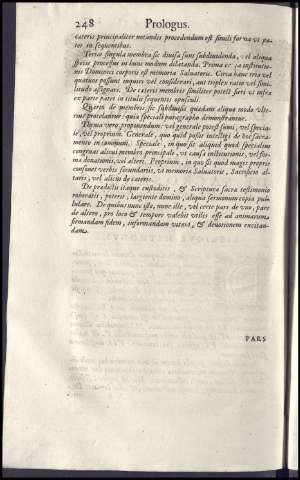 248 Prologus.
cateris principaliter notandis procedendum est simili forma vt pa-
tet in sequentibus.
Tertio singula membra sic diuisa sunt subdiuidenda, vt aliqua
species processus in huius modum distanda. Prima ex causa institutio-
nis Dominici corporis est memoria Saluatoris. Circa hanc tria vel
quatuor possunt inquiri vel considerari, aut triplex ratio vel simi-
litudo assignari. De cateris membris similiter poterit fieri vt infra
ex parte patet in titulis sequentis opusculi.
Quarto de membris, sic subdiuisis quadam aliqua modo vlte-
rius procedatur: quia speciali paragrapho demonstratur.
Thema vero proponendum: vel generale potest sumi, vel specia-
le, vel proprium. Generale, quo quid possit intelligi de hoc sacra-
mento in communi. Speciale, in quo sit aliquid quod specialius
congruat alicui membro principali, vt causa institutionis, vel for-
ma donationis, vel alteri. Proprium, in quo sit quod magis proprie
consonet verbis secundariis, vt memoria Saluatoris, Sacrificio al-
taris, vel alicui de cateris.
De prædictis itaque custoditis, & Scriptura sacra testimonio
roboratis, poterit, largiente domino, aliqua sermonum copia pul-
lulare. De quibus nunc iste, nunc ille, vel certe pars de vno, pars
de altero, pro loco & tempore valebit vtilis esse ad animarum
firmandam fidem, informandam vitam, & deuotionem excitan-
dam.
PARS